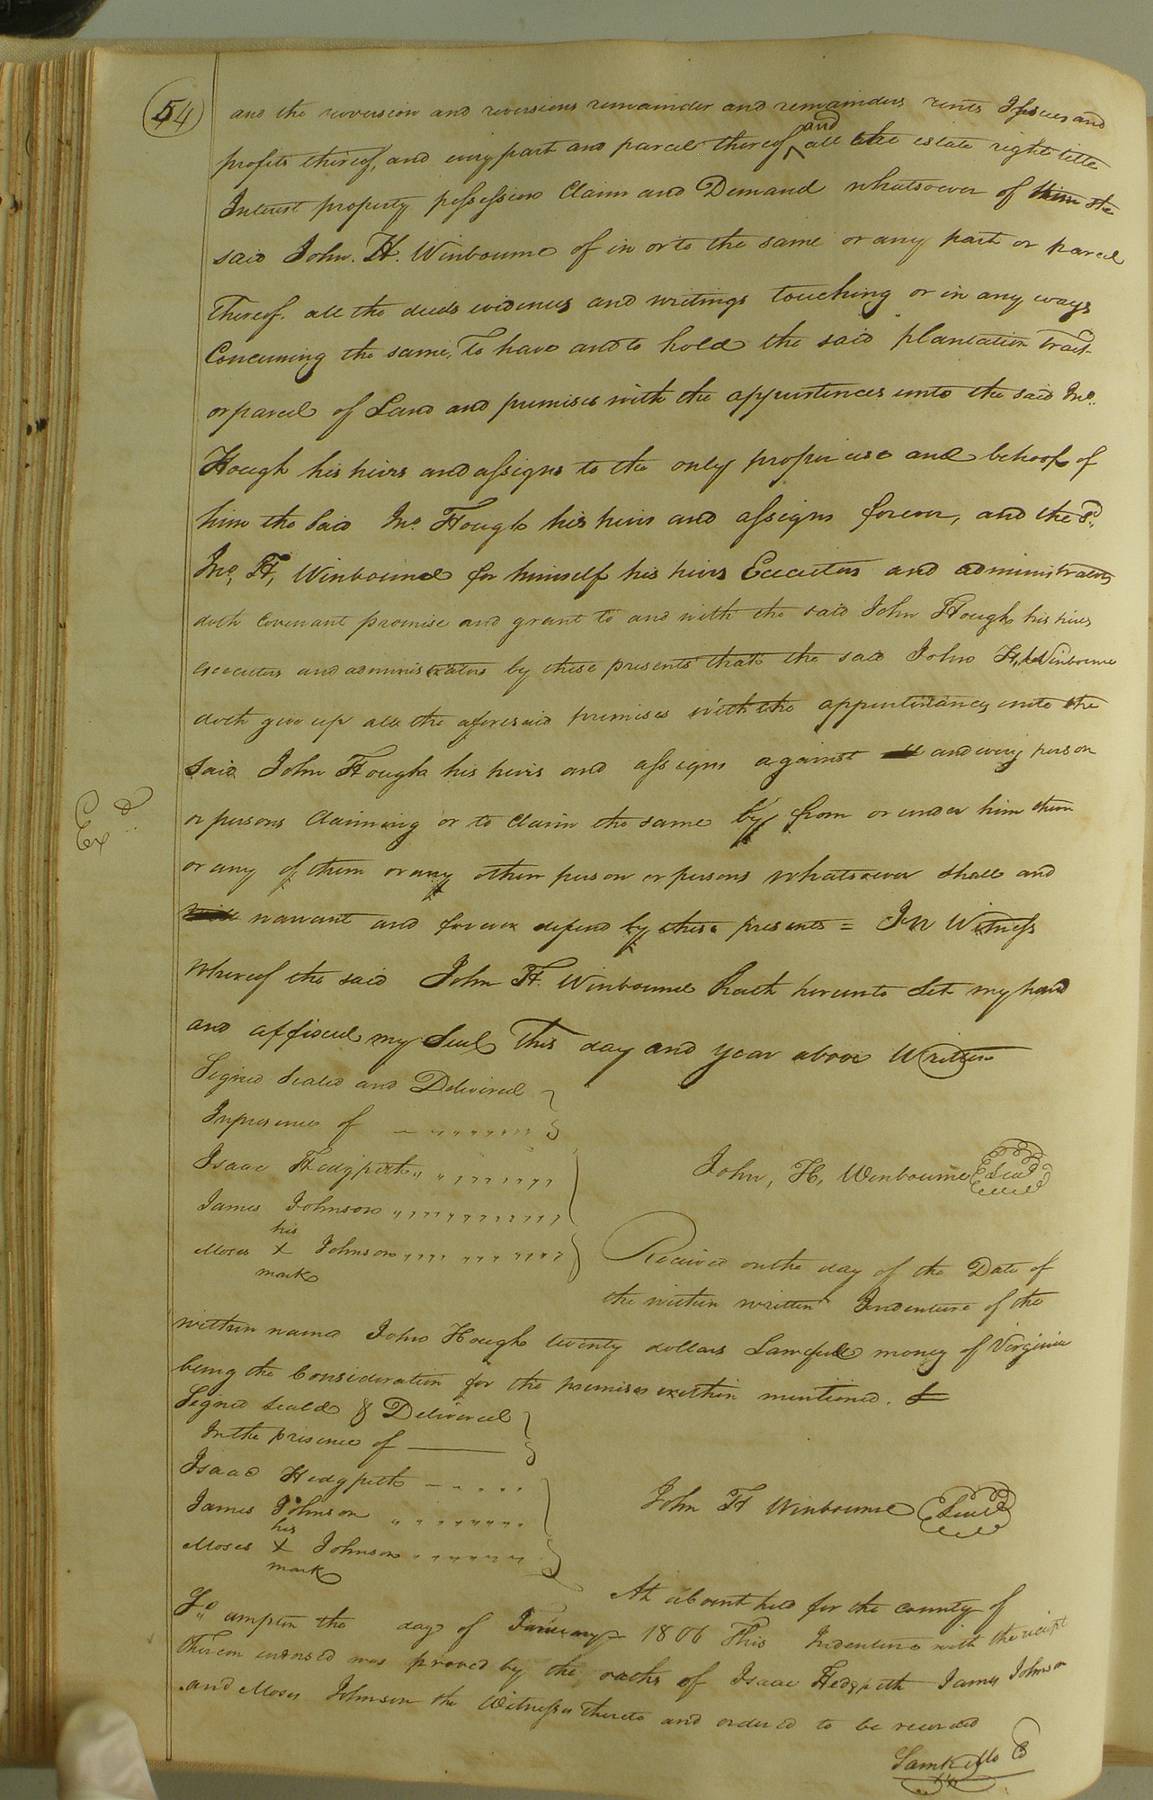 54
and the reversion and reversions remainder and remainders rents Issues and
profits thereof, and every part and parcel thereof and all the estate right title
Interest property possession Claim and Demand whatsoever of him the
said John. H. Winbourne of in or to the same or any part or parcel
Thereof. all the deeds evidences and writings touching or in any ways
Concerning the same, To have and to hold the said plantation tract
or parcel of Land and premises with the appurtences unto the said Jno.
Hough his heirs and assigns to the only proper use and behoof of
him the Said Jno. Hough his heirs and assigns forever, and the sd.
Jno, H, Winbourne for himself his heirs Executors and administrators
doth Covenant promise and grant to and with the said John Hough his heirs
executors and administrators by these presents that the said John H, Winbourne
doth give up all the aforesaid premises with the appurtenances unto the
Said John Hough his heirs and assigns against all and every person
or persons Claiming or to Claim the same by from or under him them
or any of them or any other person or persons whatsoever shall and
Exd.
will warrant and forever defend by these presents = In Witness
whereof the said John H. Winbourne hath hereunto Set my hand
and affixed my Seal This day and year above Written
Signed Sealed and Delivered
In presence of
Isaac Hedgpeth
James Johnson
his
Moses X Johnson
mark
John, H, Winbourne Seal
Received on the day of the Date of
the within written Indenture of the
within named John Hough twenty dollars Lawfull money of Virginia
being the Consideration for the premises within mentioned.
Signed Seald & Delivered
In the presence of
Isaac Hedgpeth
James Johnson
his
Moses X Johnson
mark
John H Winbourne Seal
At a Court held for the county of
So. ampton the day of January 1806 This Indenture with the receipt
thereon endorsed was proved by the oaths of Isaac Hedgpeth James Johnson
and Moses Johnson the Witnesses thereto and ordered to be recorded